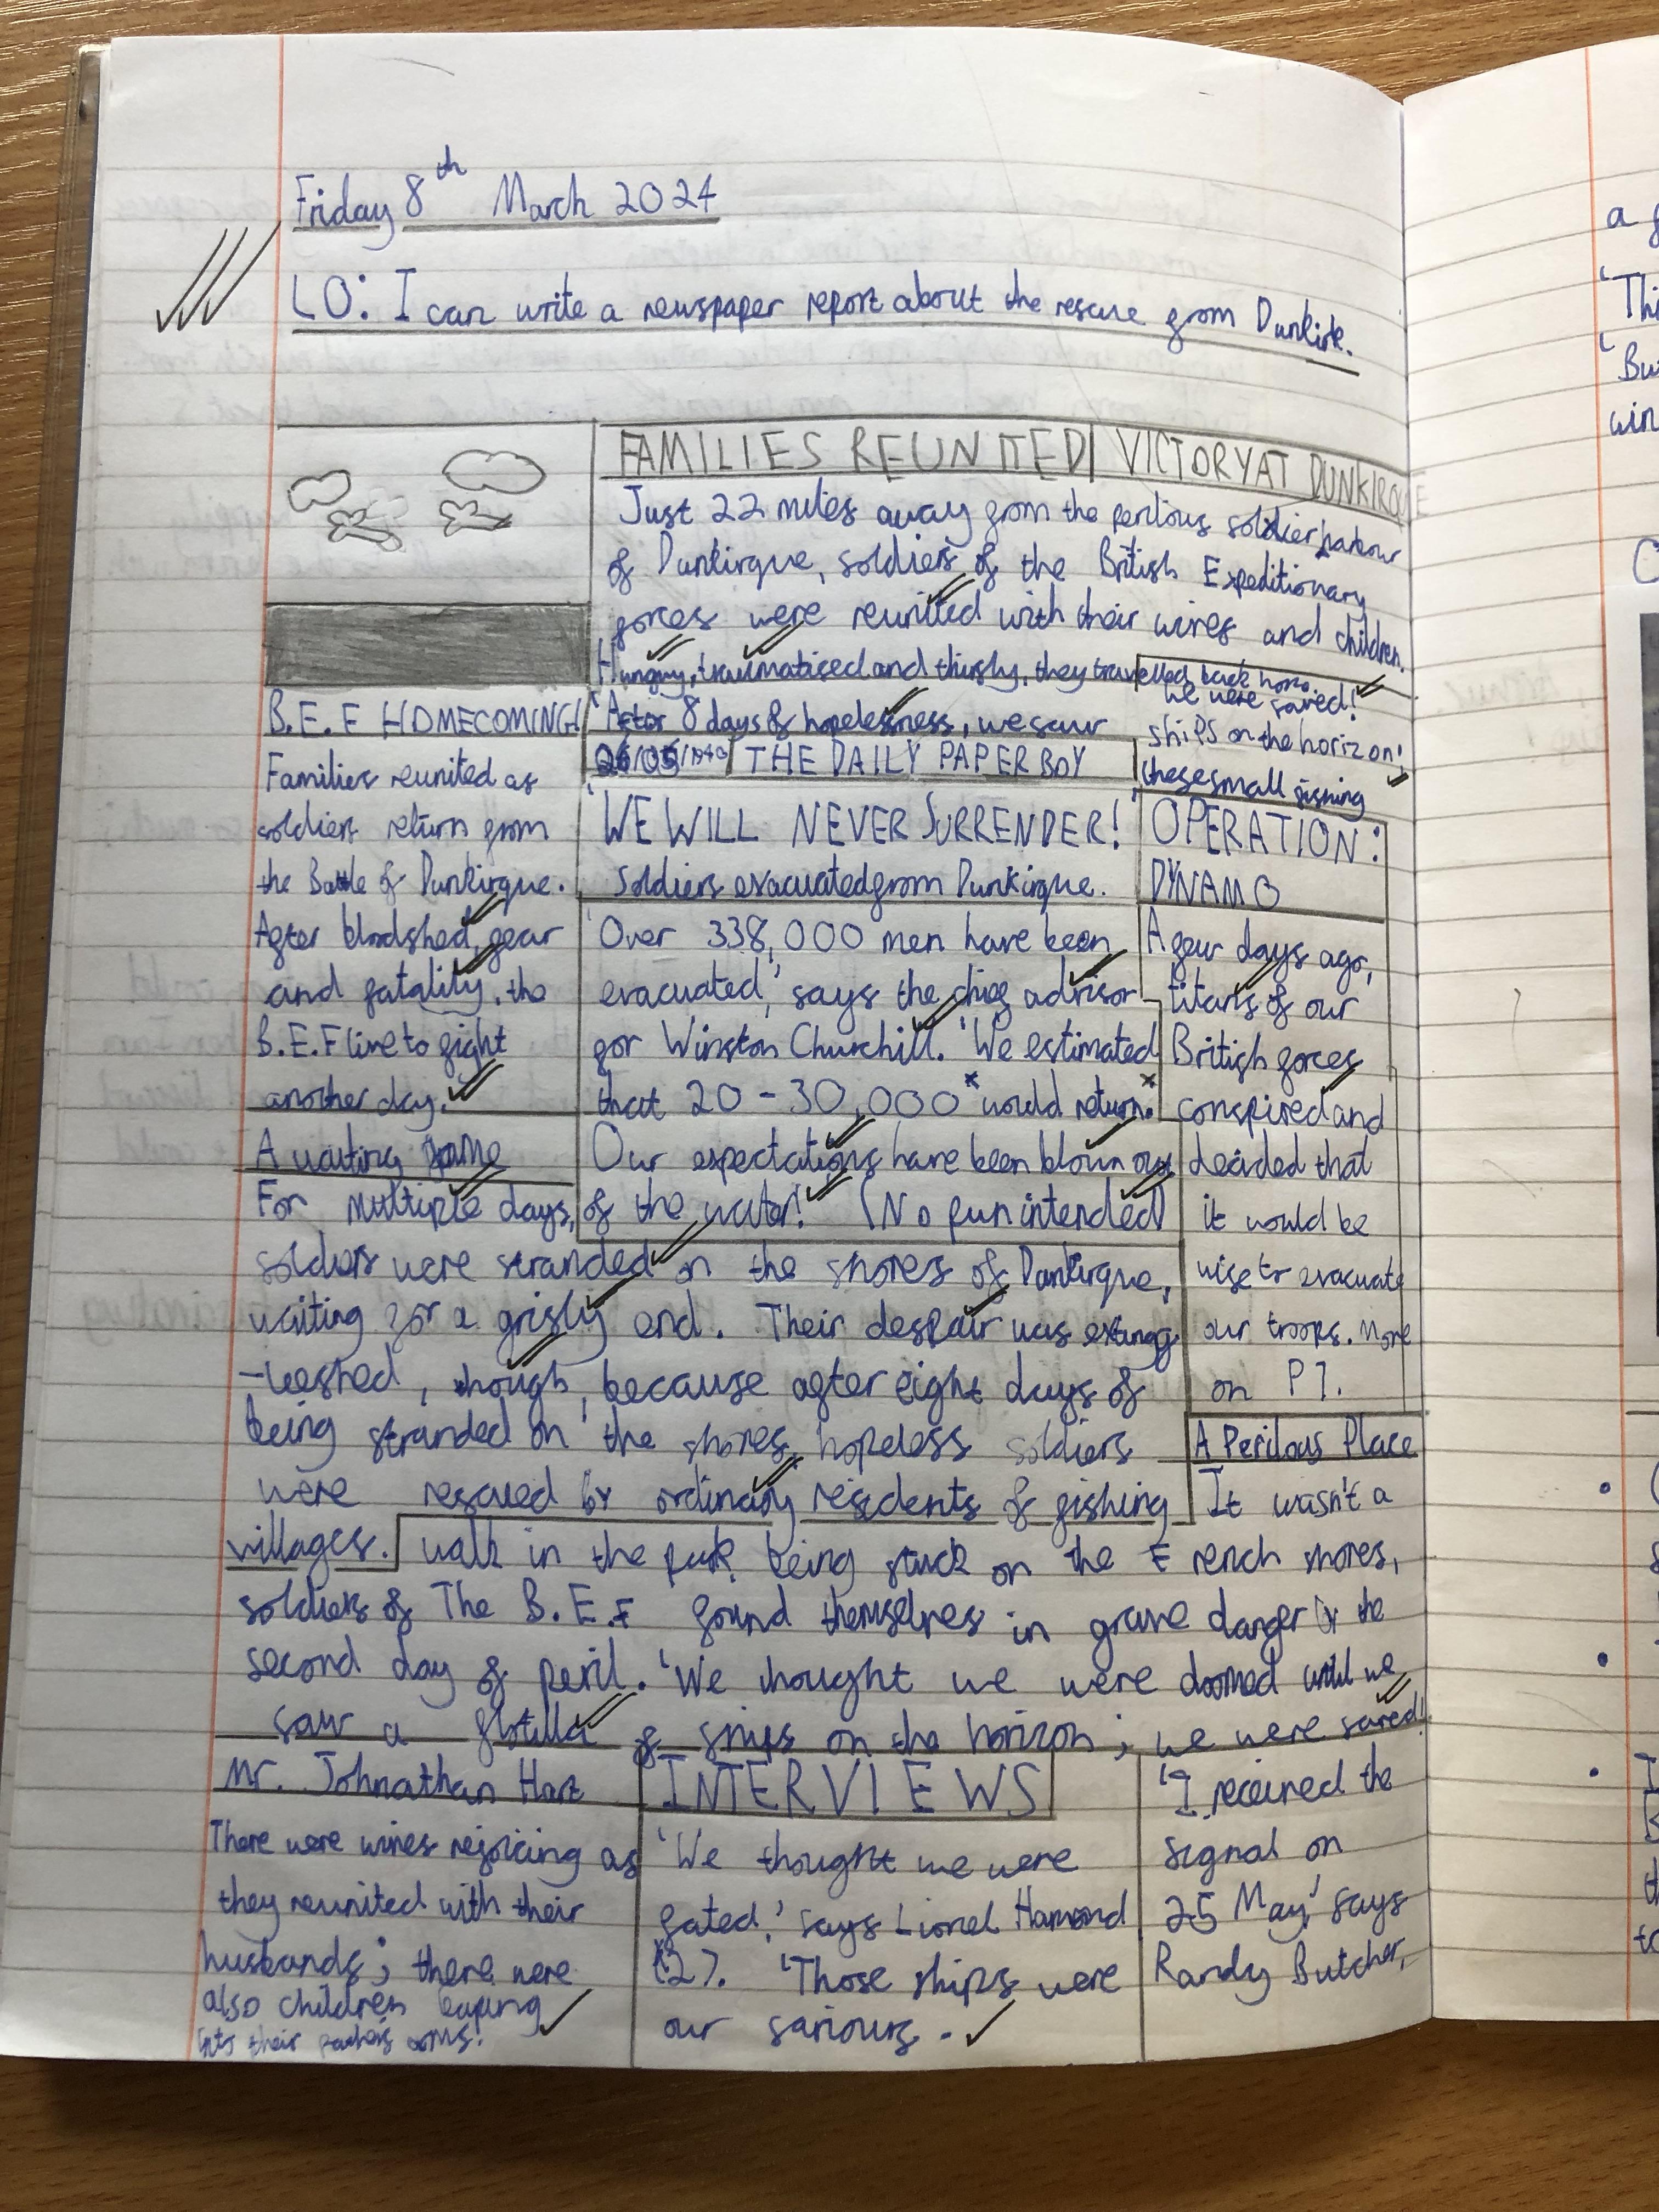 Friday 8th March 2024
LO: I can write a newspaper report about the rescue from Dunkirk.
FAMILIES REUNITED/ VICTORY AT DUNKIRQUE
Just 22 miles away from the perilous harbour
of Dunkirque, soldiers of the British Expeditionary
forces were reunited with their wives and children.
Hungry, traumatised and thirsty, they travelled back home.
'After 8 days of hopelessness, we saw
ships on the horizon;
we were saved!
these small fishing
B.E.F HOMECOMING!
Families reunited as
soldiers return from
the Battle of Dunkirque.
After bloodshed, fear
and fatality, the
B.E.F live to fight
another day.
26/05/1940 THE DAILY PAPERBOY
'WE WILL NEVER SURRENDER!'
Soldiers evacuated from Dunkirque.
'Over 338,000 men have been
evacuated,' says the chief advisor
for Winston Churchill. 'We estimated
that 20-30,000* would return.*
Our expectations have been blown out
of the water!' (No pun intended)
OPERATION:
DYNAMO
A few days ago,
titans of our
British forces
conspired and
decided that
it would be
wise to evacuate
our troops. More
on P7.
A waiting game
For multiple days,
soldiers were stranded on the shores of Dunkirque,
waiting for a grisly end. Their despair was exting
-ueshed, though, because after eight days of
being stranded on the shores, hopeless soldiers
were rescued by ordinary residents of fishing
villages.
A Perilous Place
It wasn't a
walk in the park being stuck on the French shores,
soldiers of The B.E.F found themselves in grave danger by the
second day of peril. 'We thought we were doomed until we
saw a flotilla of ships on the horizon; we were saved!
Mr. Johnathan Hart
There were wives rejoicing as
they reunited with their
husbands; there were
also children leaping
into their father's arms!
INTERVIEWS
'We thought we were
fated,' says Lionel Hamond
(27). 'Those ships were
our saviours.
'I received the
signal on
25 May' says
Randy Butcher,
a
'Thi
'Bu
win